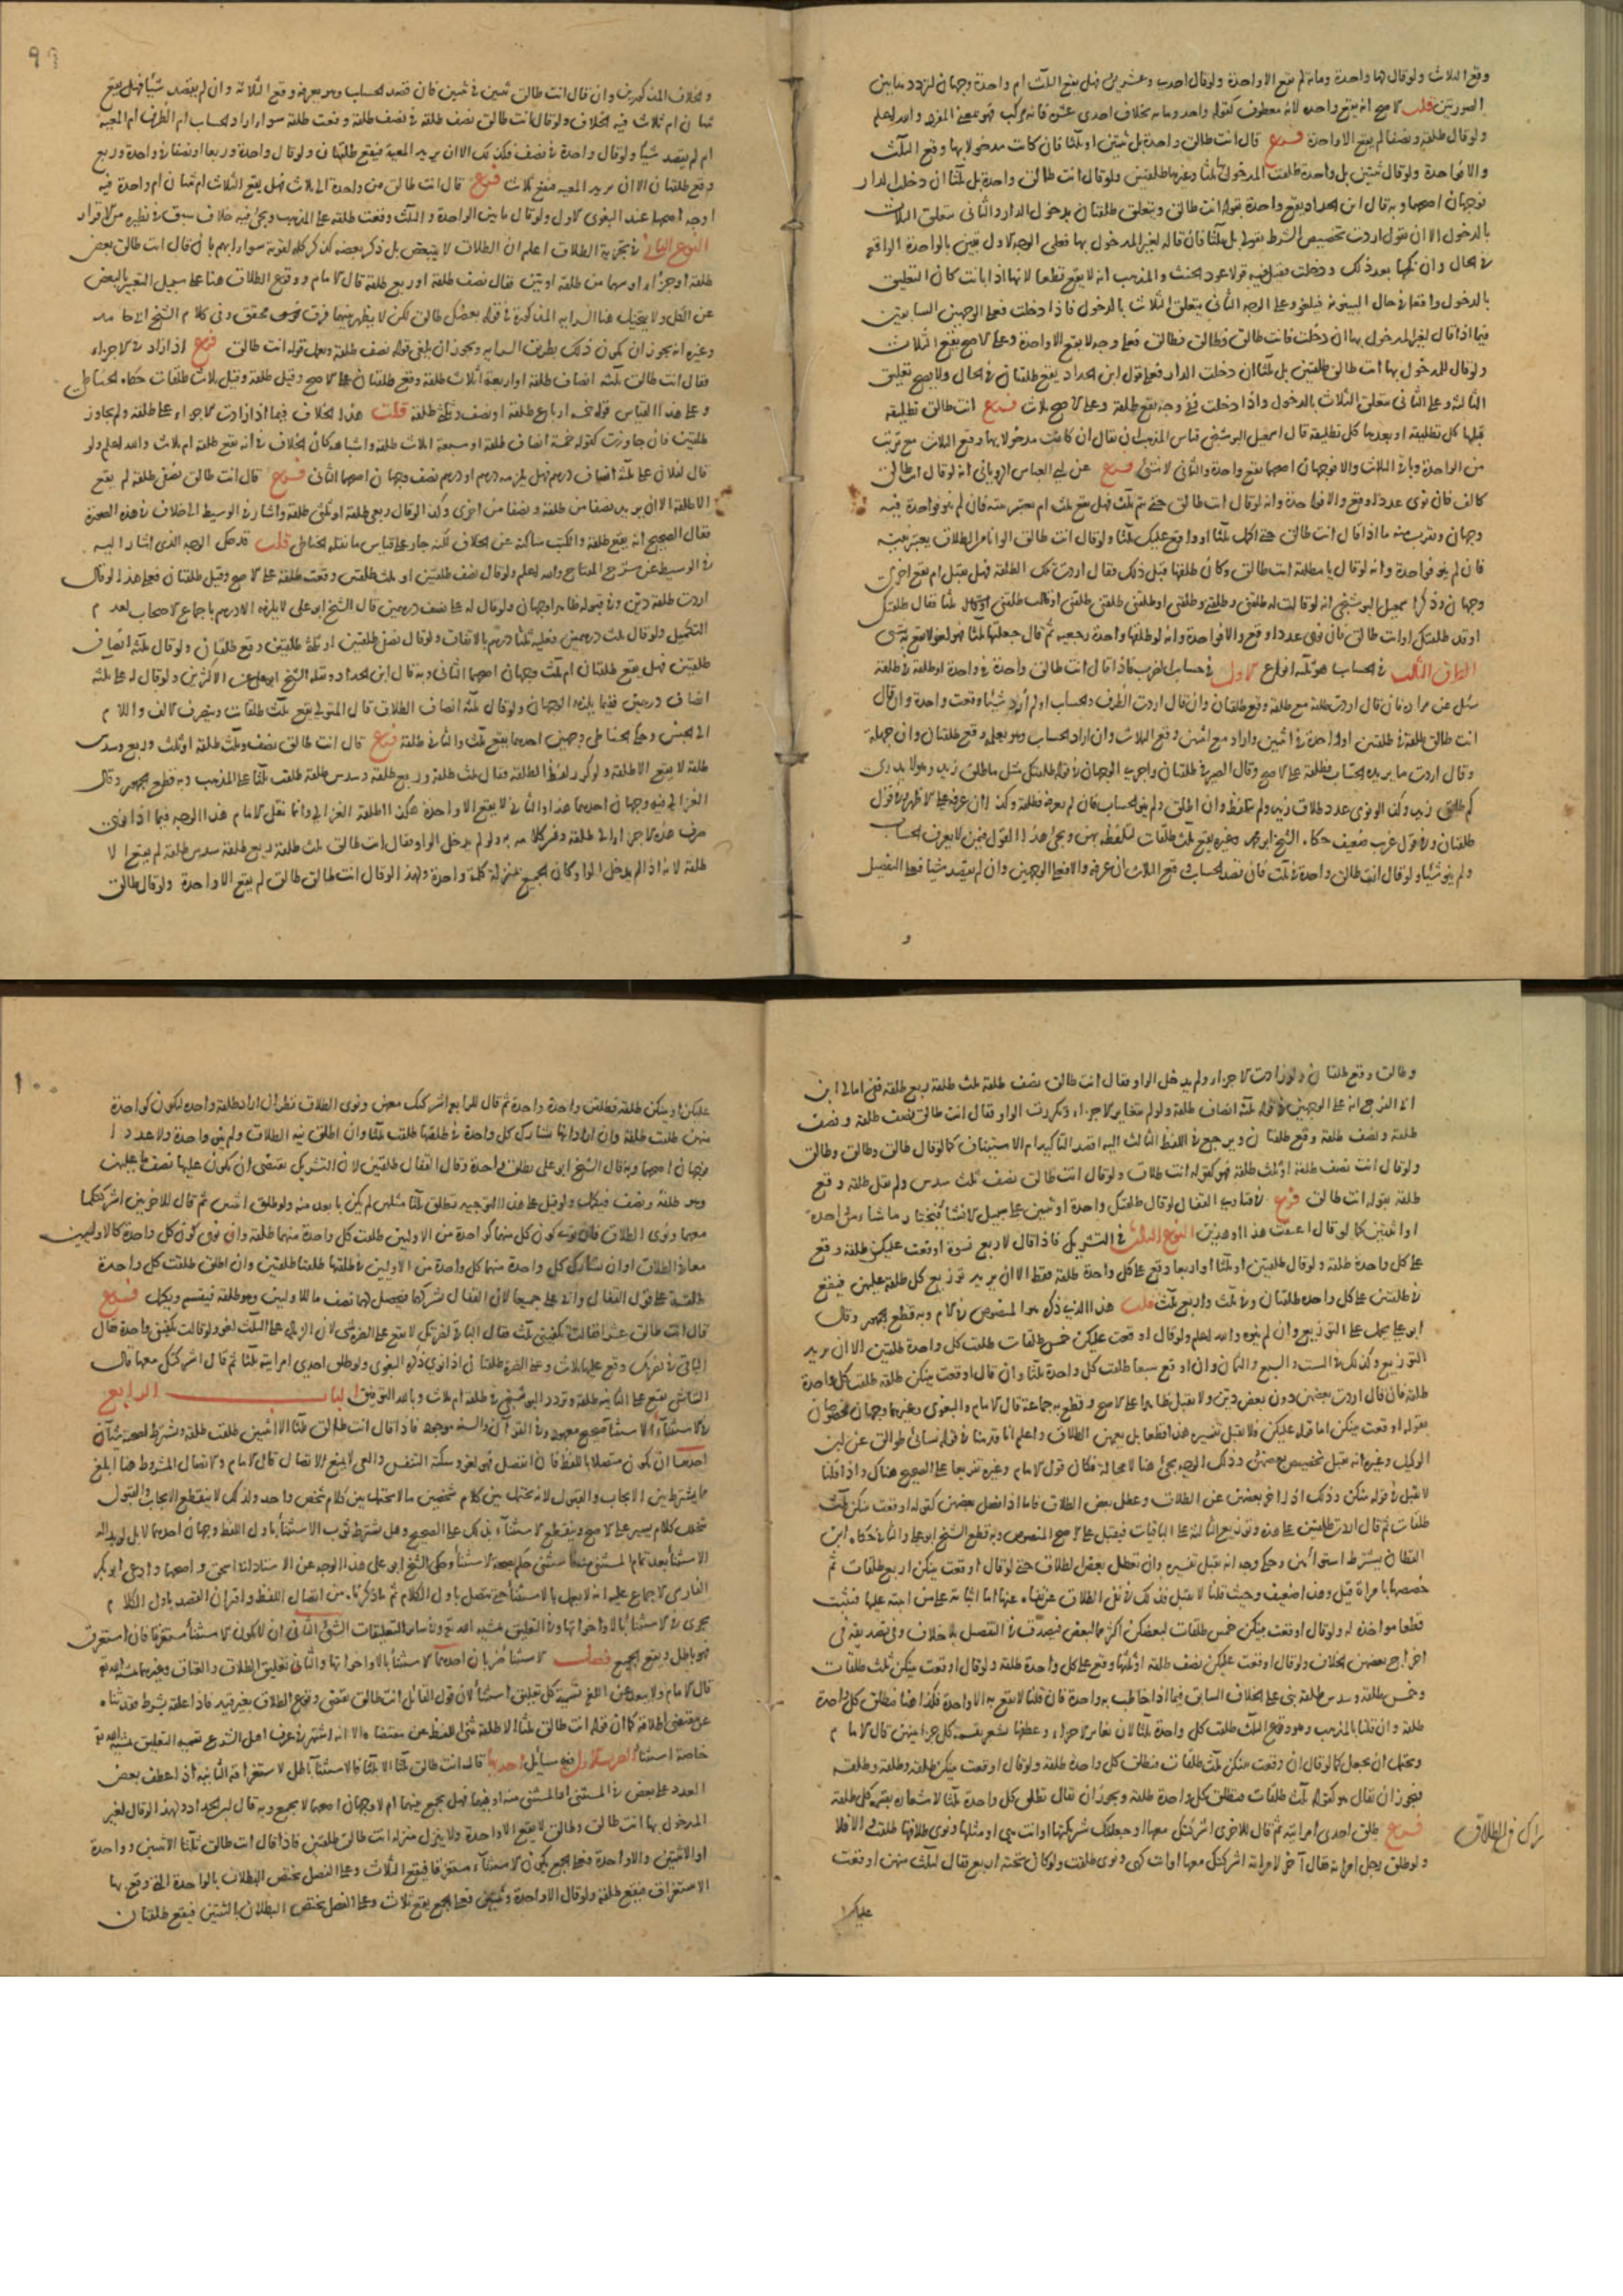 وقع الثلاث ولو قال لها واحدة ومائة لم يقع الا واحدة ولو قال احدى وعشرين فهل يقع الثلث ام واحدة وجهان لتردده بين
الصورتين قلت الاصح انه يقع واحدة لانه معطوف كقوله واحد ومائة بخلاف احدى عشرة فانه مركب فهو بمعنى المفرد والله اعلم
ولو قال طلقة ونصفا لم يقع الا واحدة فرع قال انت طالق واحدة بل ثنتين او ثلثا فان كانت مدخولا بها وقع الثلث
والا فواحدة ولو قال ثنتين بل واحدة طلقت المدخول بها ثلثا وغيرها طلقتين ولو قال انت طالق واحدة بل ثلثا ان دخلت الدار
فوجهان اصحهما وبه قال ابن الحداد يقع واحدة بقوله انت طالق ويتعلق طلقتان بدخول الدار والثاني يتعلق الثلاث
بالدخول الا ان يقول اردت تخصيص الشرط بقولي بل ثلثا فان قاله لغير المدخول بها فعلى الوجه الاول تبين بالواحدة الواقعة
في الحال وان نكحها بعد ذلك ودخلت ففيه قولا عود الحنث والمذهب انه لا يقع قطعا لانها اذا بانت كان التعليق
بالدخول واقعا في حال البينونة فيلغو وعلى الوجه الثاني يتعلق الثلاث بالدخول فاذا دخلت فعلى الوجهين السابقين
فيما اذا قال لغير المدخول بها ان دخلت فانت طالق وطالق فعلى وجه لا يقع الا واحدة وعلى الاصح يقع الثلاث
ولو قال للمدخول بها انت طالق طلقتين بل ثلثا ان دخلت الدار فعلى قول ابن الحداد يقع طلقتان في الحال ولا يصح تعليق
الثالثة وعلى الثاني يتعلق الثلاث بالدخول واذا دخلت ففي وجه يقع طلقة وعلى الاصح ثلاث فرع انت طالق تطليقة
قبلها كل تطليقة او بعدها كل تطليقة قال اسمعيل البوشنجي قياس المذهب ان يقال ان كانت مدخولا بها وقع الثلاث مع ترتيب
بين الواحدة وباقي الثلاث والا فوجهان اصحهما يقع واحدة والثاني لا شئ فرع عن ابي العباس الروياني انه لو قال انت طالق
كالف فان نوى عددا وقع والا فواحدة وانه لو قال انت طالق حتى يتم ثلث فهل يقع ثلث ام يعتبر نيته فان لم ينو فواحدة فيه
وجهان ويقرب منه ما اذا قال انت طالق حتى اكمل ثلثا او اوقع عليك ثلثا ولو قال انت طالق الوانا من الطلاق يعتبر نيته
فان لم ينو فواحدة وانه لو قال يا مطلقة انت طالق وكان طلقها قبل ذلك فقال اردت تلك الطلقة فهل يقبل ام يقع اخرى
وجهان وذكر اسمعيل البوشنجي انه لو قالت له طلقني وطلقني وطلقني او طلقني طلقني طلقني او قالت طلقني ثلثا فقال طلقتك
او قد طلقتك او انت طالق فان نوى عددا وقع والا فواحدة وانه لو طلقها واحدة رجعية ثم قال جعلتها ثلثا فهو لغو لا يقع به شئ
الطرف الثالث في الحساب هو ثلثة انواع الاول في حساب الضرب فاذا قال انت طالق واحدة في واحدة او طلقة في طلقة
سئل عن مراده فان قال اردت طلقة مع طلقة وقع طلقتان وان قال اردت الظرف والحساب او لم ارد شيئا وقعت واحدة وان قال
انت طالق طلقة في طلقتين او واحدة في اثنين واراد مع اثنين وقع الثلاث وان اراد الحساب وهو يعلمه وقع طلقتان وان جهله
وقال اردت ما يريده الحساب فطلقة على الاصح وقال الصيرفي طلقتان واجري الوجهان في قوله طلقتك مثل ما طلق زيد وهو لا يدري
كم طلق زيد وكذا لو نوى عدد طلاق زيد ولم يتلفظ وان اطلق ولم ينو الحساب فان لم يعرفه فطلقة وكذا ان عرفه على الاظهر وفي قول
طلقتان وفي قول غريب ضعيف حكاه الشيخ ابو محمد وغيره يقع ثلث طلقات لتلفظه بهن ويجئ هذا القول فيمن لا يعرف الحساب
ولم ينو شيئا ولو قال انت طالق واحدة في ثلث فان قصد الحساب وقع الثلاث ان عرفه والا فعلى الوجهين وان لم يقصد شيئا فعلى التفصيل
و
99
والخلاف المذكورين وان قال انت طالق ثنتين في ثنتين فان قصد الحساب وهو يعرفه وقع الثلاثة وان لم يقصد شيئا فهل يقع
ثنتان ام ثلاث فيه الخلاف ولو قال انت طالق نصف طلقة في نصف طلقة وقعت طلقة سوا اراد الحساب ام الظرف ام المعية
ام لم يقصد شيئا ولو قال واحدة في نصف فكذلك الا ان يريد المعية فيقع طلقتان ولو قال واحدة وربعا او نصفا في واحدة وربع
وقع طلقتان الا ان يريد المعية فيقع ثلاث فرع قال انت طالق من واحدة الى ثلاث فهل يقع الثلاث ام ثنتان ام واحدة فيه
اوجه اصحها عند البغوي الاول ولو قال ما بين الواحدة والثلث وقعت طلقة على المذهب ويجئ فيه خلاف سبق في نظيره من الاقرار
النوع الثاني في تجزية الطلاق اعلم ان الطلاق لا يتبعض بل ذكر بعضه كذكر كله لقوته سوا ابهم بان قال انت طالق بعض
طلقة او جزءا او سهما من طلقة او بين فقال نصف طلقة او ربع طلقة قال الامام ووقوع الطلاق هنا على سبيل التعبير بالبعض
عن الكل ولا يتخيل هنا السراية المذكورة في قوله بعضك طالق لكن لا يظهر بينهما فرق محقق وفي كلام الشيخ ابي حامد
وغيره انه يجوز ان يكون ذلك بطريق السراية ويجوز ان يلغى قوله نصف طلقة ويعمل قوله انت طالق فرع اذا زاد في الاجزاء
فقال انت طالق ثلثة انصاف طلقة او اربعة اثلاث طلقة وقع طلقتان على الاصح وقيل طلقة وقيل ثلاث طلقات حكاه الحناطي
وعلى هذا القياس قوله خمسة ارباع طلقة او نصف وثلثي طلقة قلت هذا الخلاف فيما اذا زادت الاجزاء على طلقة ولم يجاوز
طلقتين فان جاوزت كقوله خمسة انصاف طلقة او سبعة اثلاث طلقة واشباهه كان الخلاف في انه يقع طلقة ام ثلاث والله اعلم ولو
قال لفلان على ثلثة انصاف درهم فهل يلزمه درهم او درهم ونصف وجهان اصحهما الثاني فرع قال انت طالق نصفي طلقة لم يقع
الا طلقة الا ان يريد نصفا من طلقة ونصفا من اخرى وكذا لو قال ربعي طلقة او ثلثي طلقة واشار في الوسيط الى خلاف في هذه الصورة
فقال الصحيح انه يقع طلقة والكتب ساكتة عن الخلاف لكنه جار على قياس ما نقله الحناطي قلت قد حكى الوجه الذي اشار اليه
في الوسيط عن شرح المفتاح والله اعلم ولو قال نصف طلقتين او ثلث طلقتين وقعت طلقة على الاصح وقيل طلقتان فعلى هذا لو قال
اردت طلقة دين وفي قبوله ظاهرا وجهان ولو قال له على نصف درهمين قال الشيخ ابو علي لا يلزمه الا درهم باجماع الاصحاب لعدم
التكميل ولو قال ثلث درهمين فعليه ثلثا درهم بالاتفاق ولو قال نصفي طلقتين او ثلثي طلقتين وقع طلقتان ولو قال ثلثة انصاف
طلقتين فهل يقع طلقتان ام ثلث وجهان اصحهما الثاني وبه قال ابن الحداد ونقله الشيخ ابو علي عن الاكثرين ولو قال له على ثلثة
انصاف درهمين ففيما يلزمه الوجهان ولو قال ثلثة انصاف الطلاق قال المتولي يقع ثلث طلقات وينصرف الالف واللام
الى الجنس وحكى الحناطي وجهين احدهما يقع ثلث والثاني طلقة فرع قال انت طالق نصف وثلث طلقة او ثلث وربع وسدس
طلقة لا يقع الا طلقة ولو كرر لفظ الطلقة فقال ثلث طلقة وربع طلقة وسدس طلقة طلقت ثلثا على المذهب وبه قطع الجمهور وقال
الغزالي فيه وجهان احدهما هذا والثاني لا يقع الا واحدة هكذا اطلقه الغزالي وانما نقل الامام هذا الوجه فيما اذا نوى
صرف هذه الاجزاء الى طلقة وفسر كلامه به ولو لم يدخل الواو فقال انت طالق ثلث طلقة ربع طلقة سدس طلقة لم يقع الا
طلقة لانه اذا لم يدخل الواو كان الجميع بمنزلة كلمة واحدة ولهذا لو قال انت طالق طالق لم يقع الا واحدة ولو قال طالق
وطالق وقع طلقتان ولو زادت الاجزاء ولم يدخل الواو فقال انت طالق نصف طلقة ثلث طلقة ربع طلقة ففي امالي ابي
الفرج انه على الوجهين في قوله ثلثة انصاف طلقة ولو لم يتغاير الاجزاء وتكررت الواو فقال انت طالق نصف طلقة ونصف
طلقة ونصف طلقة وقع طلقتان ويرجع في اللفظ الثالث اليه اقصد التاكيد ام الاستيناف كما لو قال طالق وطالق وطالق
ولو قال انت نصف طلقة او ثلث طلقة فهو كقوله انت طلاق ولو قال انت طالق نصف ثلث سدس ولم يقل طلقة وقع
طلقة بقوله انت طالق فرع في فتاوى القفال لو قال طلقتك واحدة او ثنتين على سبيل الانشا فيختار ما شاء من واحدة
او اثنتين كما لو قال اعتقت هذا او هذين النوع الثالث في التشريك فاذا قال لاربع نسوة اوقعت عليكن طلقة وقع
على كل واحدة طلقة ولو قال طلقتين او ثلثا او اربعا وقع على كل واحدة طلقة فقط الا ان يريد توزيع كل طلقة عليهن فيقع
في طلقتين على كل واحدة طلقتان وفي ثلث واربع ثلث قلت هذا الذي ذكره هو المنصوص في الام وبه قطع الجمهور وقال
ابو علي يحمل على التوزيع وان لم ينوه والله اعلم ولو قال اوقعت عليكن خمس طلقات طلقت كل واحدة طلقتين الا ان يريد
التوزيع وكذلك في الست والسبع والثمان وان اوقع تسعا طلقت كل واحدة ثلثا وان قال اوقعت بينكن طلقة طلقت كل واحدة
طلقة فان قال اردت بعضهن دون بعض دين ولا يقبل ظاهرا على الاصح وقطع به جماعة قال الامام والبغوي وغيرهما وجهان مخصوصان
بقوله اوقعت بينكن اما قوله عليكن فلا يقبل تفسيره هذا قطعا بل يعمهن الطلاق واعلم انا قدمنا في قوله نسائي طوالق عن ابن
الوكيل وغيره انه يقبل تخصيص بعضهن وذلك الوجه يجئ هنا لا محالة فكان قول الامام وغيره تفريعا على الصحيح هناك واذا قلنا
لا يقبل في قوله بينكن وذلك اذا اخرج بعضهن عن الطلاق وعطل بعض الطلاق فاما اذا فضل بعضهن كقوله اوقعت بينكن ثلث
طلقات ثم قال اردت طلقتين على هذه وتوزيع الثالثة على الباقيات فيقبل على الاصح المنصوص وبه قطع الشيخ ابو علي والثاني حكاه ابن
القطان يشترط استوائهن وحكى وجه انه يقبل تفسيره وان تعطل بعض الطلاق حتى لو قال اوقعت بينكن اربع طلقات ثم
خصصها بامراة قبل وهذا ضعيف وحيث قلنا لا يقبل فذلك في نفي الطلاق عمن نفاه عنها اما اثباته على من اثبته عليها فيثبت
قطعا مواخذة له ولو قال اوقعت بينكن خمس طلقات لبعضكن اكثر مما لبعض فيصدق في التفصيل بلا خلاف وفي تصديقه في
اخراج بعضهن الخلاف ولو قال اوقعت عليكن نصف طلقة او ثلثها وقع على كل واحدة طلقة ولو قال اوقعت بينكن ثلث طلقات
وخمس طلقة وسدس طلقة بنى على الخلاف السابق فيما اذا خاطب به واحدة فان قلنا لا يقع به الا واحدة فكذا هنا فتطلق كل واحدة
طلقة وان قلنا بالمذهب وهو وقوع الثلث طلقت كل واحدة ثلثا لان تغاير الاجزاء وعطفها يشعر بقسمة كل جزء بينهن قال الامام
ويحتمل ان يجعل كما لو قال اوقعت بينكن ثلث طلقات فتطلق كل واحدة طلقة ولو قال اوقعت بينكن طلقة وطلقة وطلقة
فيجوز ان يقال هو كقوله ثلث طلقات فتطلق كل واحدة طلقة ويجوز ان يقال تطلق كل واحدة ثلثا لاشعاره بقسمة كل طلقة
فرع طلق احدى امراتيه ثم قال للاخرى اشركتك معها او جعلتك شريكتها او انت كهي او مثلها ونوى طلاقها طلقت والا فلا
ولو طلق رجل امراته فقال آخر لامراته اشركتك معها او انت كهي ونوى طلقت ولو كان تحته اربع فقال لثلث منهن اوقعت
عليكن
100
عليكن او بينكن طلقة فطلقن واحدة واحدة ثم قال للرابعة اشركتك معهن ونوى الطلاق نظر ان اراد طلقة واحدة لتكون كواحدة
منهن طلقت طلقة وان اراد انها تشارك كل واحدة في طلقتها طلقت ثلثا وان اطلق نية الطلاق ولم ينو واحدة ولا عددا
فوجهان اصحهما وبه قال الشيخ ابو علي تطلق واحدة وقال القفال طلقتين لان التشريك يقتضي ان يكون عليها نصف ما عليهن
وهو طلقة ونصف فيكمل ولو قيل على هذا التوجيه تطلق ثلثا مثلهن لم يكن يا بعد منه ولو طلق اثنتين ثم قال للاخريين اشركتكما
معهما ونوى الطلاق فان نوى كون كل منهما كواحدة من الاوليين طلقت كل واحدة منهما طلقة وان نوى كون كل واحدة كالاوليين
معا في الطلاق او ان تشارك كل واحدة منهما كل واحدة من الاوليين في طلقتها طلقتا طلقتين وان اطلق طلقت كل واحدة
طلقة على قول القفال وابي علي جميعا لان القفال شركهما فيحصل لهما نصف ما للاوليين وهو طلقة فيقسم ويكمل فرع
قال انت طالق عشرا فقالت يكفيني ثلث فقال الباقي لضرتك لا يقع على الضرة شئ لان الزيادة على الثلث لغو ولو قالت تكفيني واحدة فقال
الباقي لضرتك وقع عليها ثلاث وعلى الضرة طلقتان اذا نوى ذكره البغوي ولو طلق احدى امراتيه ثلثا ثم قال اشركتك معها قال
القاضي يقع على الثانية طلقة وتردد البوشنجي في طلقة ام ثلاث وبالله التوفيق الباب الرابع
في الاستثناء الاستثنا صحيح معهود وفي القرآن والسنة موجود فاذا قال انت طالق ثلثا الا اثنتين طلقت طلقة ويشترط لصحته شيئان
احدهما ان يكون متصلا باللفظ فان انفصل فهو لغو وسكتة التنفس والعي لا يمنع الاتصال قال الامام والاتصال المشروط هنا ابلغ
مما يشترط بين الايجاب والقبول لانه يحتمل بين كلام شخصين ما لا يحتمل بين كلام شخص واحد ولذلك لا ينقطع الايجاب والقبول
بتخلل كلام يسير على الاصح وينقطع الاستثناء بذلك على الصحيح وهل يشترط قرن الاستثنا باول اللفظ وجهان احدهما لا بل لو بدا له
الاستثنا بعد تمام المستثنى منه فاستثنى حكم بصحة الاستثنا وحكى الشيخ ابو علي هذا الوجه عن الاستاذ ابي اسحق واصحهما وادعى ابو بكر
الفارسي الاجماع عليه انه لا يعمل بالاستثنا حتى يتصل باول الكلام ثم ما ذكرنا من اتصال اللفظ واقتران القصد باول الكلام
يجري في الاستثنا بالا واخواتها وفي التعليق بمشيئة الله تع وفي سائر التعليقات الشئ الثاني ان لا يكون الاستثنا مستغرقا فان استغرق
فهو باطل ويقع الجميع فصل الاستثنا ضربان احدهما الاستثنا بالا واخواتها والثاني تعليق الطلاق والعتاق وغيرهما بمشيئة الله تع
قال الامام ولا يبعد عن اللغة تسمية كل تعليق استثنا لان قول القائل انت طالق يقتضي وقوع الطلاق بغير قيد فاذا علقه بشرط فقد ثناه
عن مقتضى اطلاقه كما ان قوله انت طالق ثلثا الا طلقة ثنى اللفظ عن مقتضاه الا انه اشتهر في عرف اهل الشرع تسمية التعليق بمشيئة الله تع
خاصة استثنا الضرب الاول فيه مسائل احديها قال انت طالق ثلثا الا ثلثا فالاستثنا باطل لاستغراقه الثانية اذا عطف بعض
العدد على بعض في المستثنى او المستثنى منه او فيهما فهل يجمع بينهما ام لا وجهان اصحهما لا يجمع وبه قال ابن الحداد ولهذا لو قال لغير
المدخول بها انت طالق وطالق لا يقع الا واحدة ولا ينزل منزلة انت طالق طلقتين فاذا قال انت طالق ثلثا الا اثنتين وواحدة
او الا اثنتين والا واحدة فعلى الجمع يكون الاستثناء مستغرقا فيقع الثلاث وعلى الفصل يختص البطلان بالواحدة التي وقع بها
الاستغراق فيقع طلقة ولو قال الا واحدة وثنتين فعلى الجمع يقع ثلاث وعلى الفصل يختص البطلان بالثنتين فيقع طلقتان